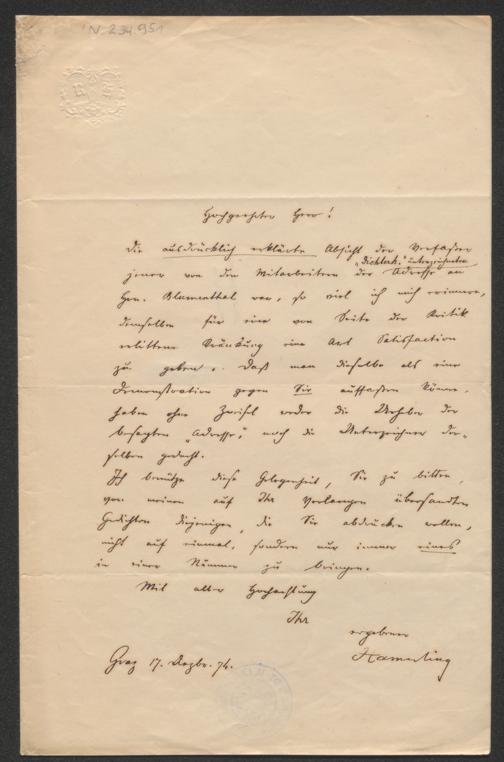 N. 234.951
Hochgeehrter Herr!
Die ausdrücklich erklärte Absicht der Verfasser
"Dichterh." unterzeichneten
jener von den Mitarbeitern der Adresse an
Hrn. Blumenthal war, so viel ich mich erinnere,
demselben für eine von Seite der Kritik
erlittene Kränkung eine Art Satisfaction
zu geben. Daß man dieselbe als eine
Demonstration gegen Sie auffassen könne,
haben ohne Zweifel weder die Urheber der
besagten "Adresse", noch die Unterzeichner der-
selben gedacht.
Ich benütze diese Gelegenheit, Sie zu bitten,
von meinen auf Ihr Verlangen übersandten
Gedichten diejenigen, die Sie abdrucken wollen,
nicht auf einmal, sondern nur immer eines
in einer Nummer zu bringen.
Mit aller Hochachtung
Ihr
ergebener
Hamerling
Graz 17. Dezbr. 74.